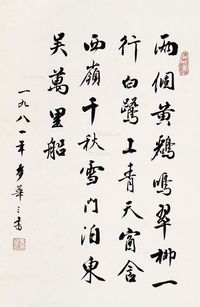 两個黄鸝鳴翠柳一
行白鷺上青天窗含
西嶺千秋雪門泊東
吴萬里船
一九八一年